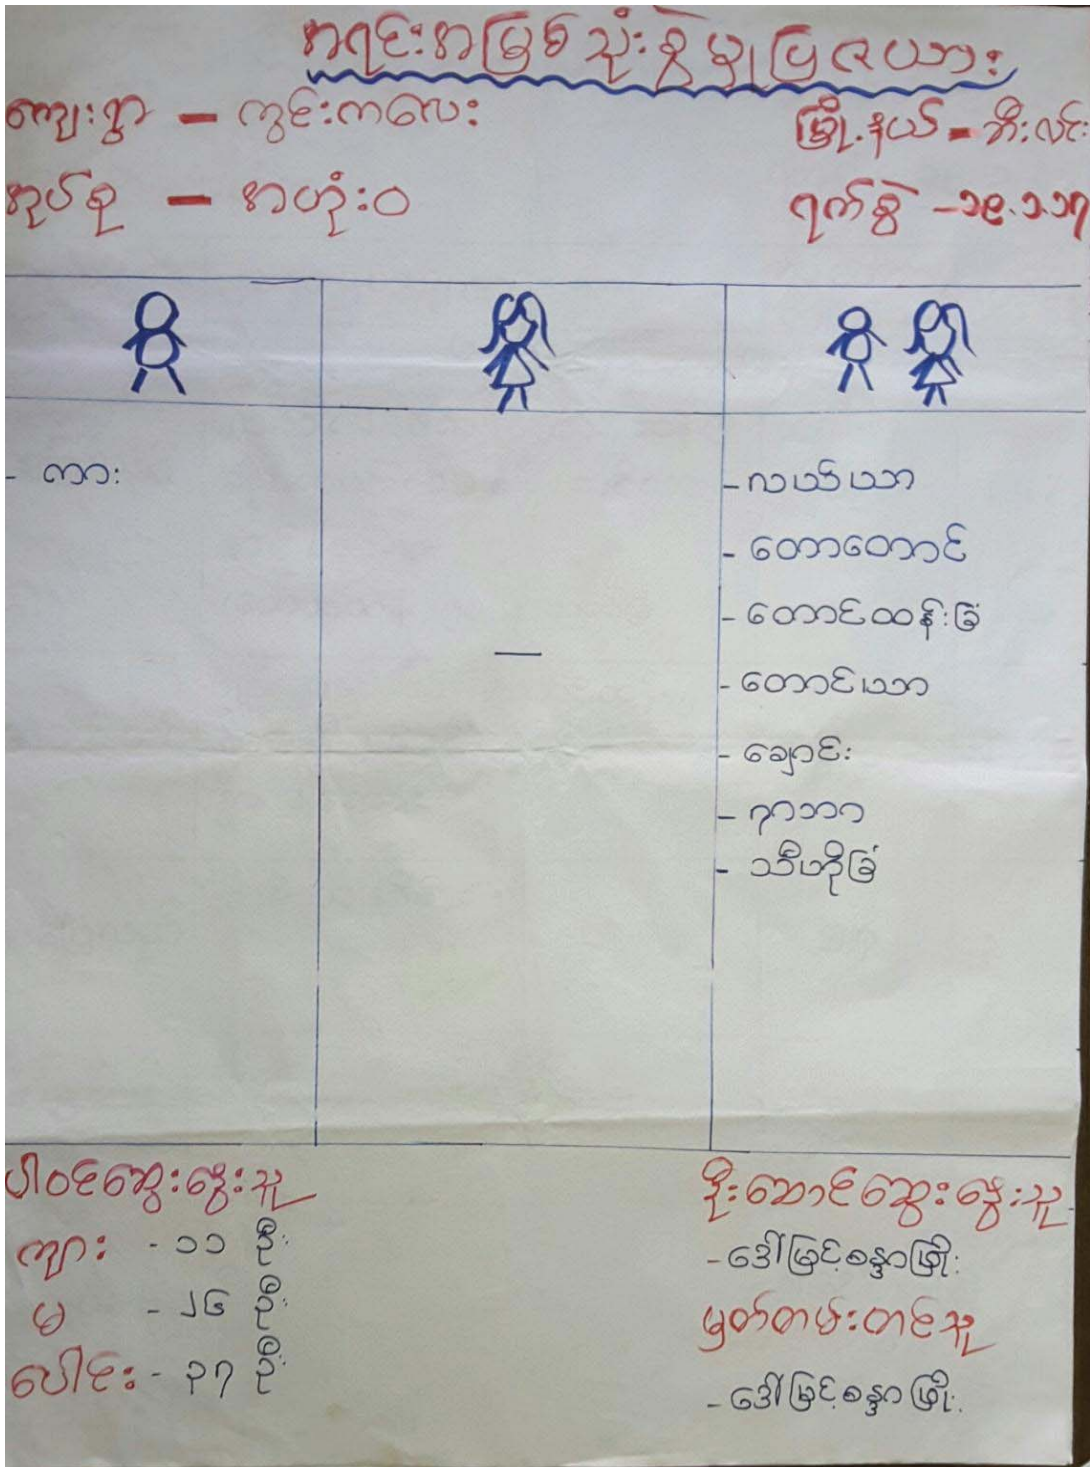 အရင်းအမြစ်သုံးစွဲမှုပြဇယား
ကျေးရွာ – ကွင်းကလေး
မြို့နယ် – ဘီးလင်း
အုပ်စု – အဟုံးဝ
ရက်စွဲ – ၁၉.၁.၁၇
- ကား
—
- လယ်ယာ
- တောတောင်
- တောင်ထန်းခြံ
- တောင်ယာ
- ချောင်း
- ရာဘာ
- သီဟိုခြံ
ပါဝင်ဆွေးနွေးသူ
ကျား - ၁၁ ဦး
မ - ၂၆ ဦး
ပေါင်း - ၃၇ ဦး
ဦးဆောင်ဆွေးနွေးသူ
- ဒေါ်မြင့်စန္ဒာဖြိုး
မှတ်တမ်းတင်သူ
- ဒေါ်မြင့်စန္ဒာဖြိုး